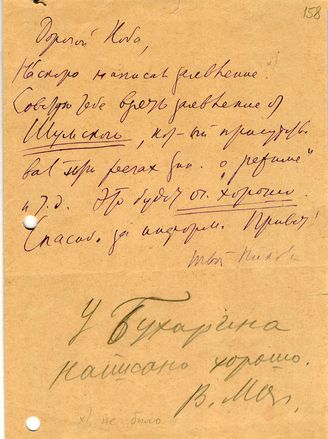 158
Дорогой Коба,
Наскоро написал заявление. х)
Советую тебе взять заявление от
Шумского, кот-ый присутство
вал при речах Зин. о "режиме"
и т.д. Это будет оч. хорошо.
Спасибо за информ. Привет!
Твой
У Бухарина
написано хорошо.
В. Мол.
х) не было